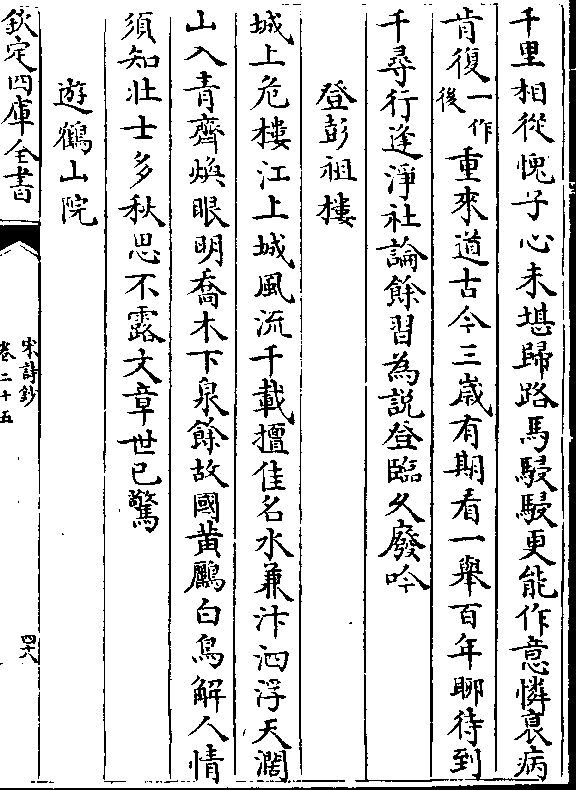 千里相從愧子心未堪歸路馬駸駸更能作意憐衰病
肯復一作後重來道古今三歳有期看一舉百年聊待到
千尋行逢淨社論餘習為説登臨久廢吟
登彭祖樓
城上危樓江上城風流千載擅佳名水兼汴泗浮天濶
山入青齊煥眼明喬木下泉餘故國黄鸝白鳥解人情
須知壯士多秋思不露文章世已驚
遊鶴山院
欽定四庫全書
宋詩鈔
卷二十五
四六